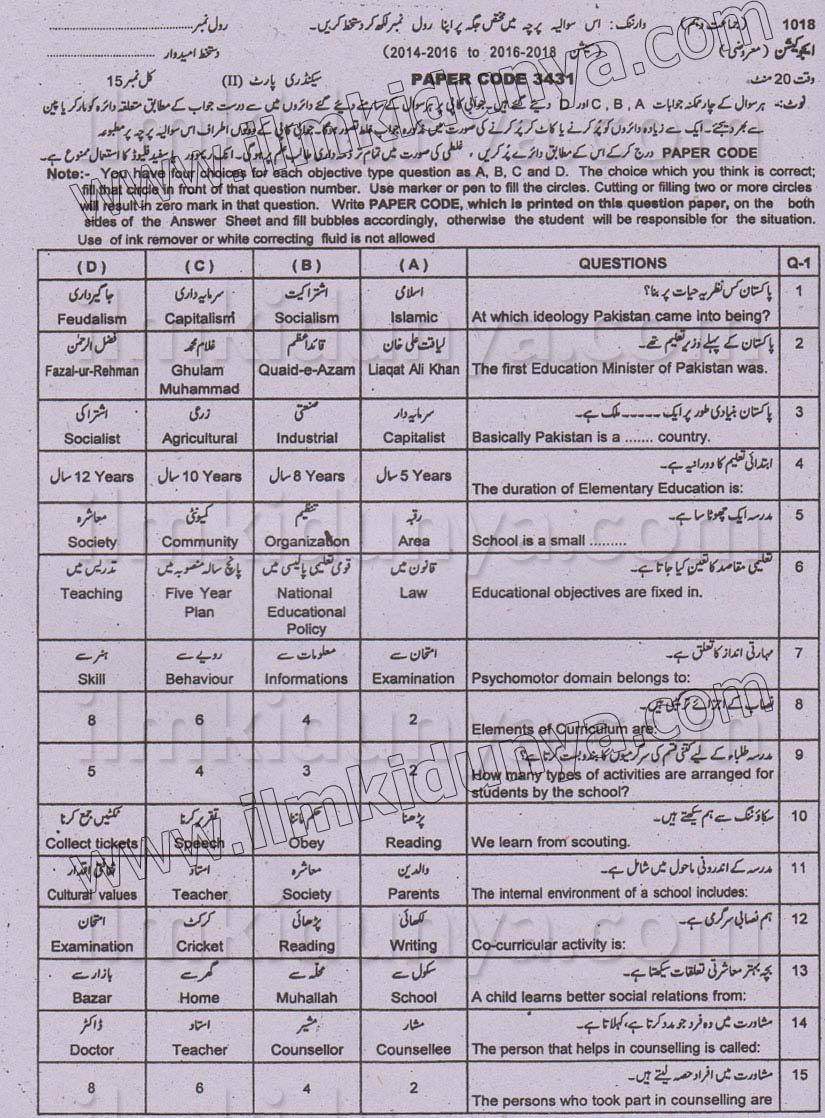 1018 (جماعت دہم) وارننگ: اس سوالیہ پرچہ میں مختص جگہ پر اپنا رول نمبر لکھ کر دستخط کریں۔ رول نمبر
ایجوکیشن (معروضی) (سیشن 2014-2016 to 2016-2018) دستخط امیدوار
وقت 20 منٹ PAPER CODE 3431 سیکنڈری پارٹ (II) کل نمبر 15
نوٹ:- ہر سوال کے چار ممکنہ جوابات C, B, A اور D دیئے گئے ہیں۔ جوابی کاپی پر ہر سوال کے سامنے دیئے گئے دائروں میں سے درست جواب کے مطابق متعلقہ دائرہ کو مارکر یا پین
سے بھر دیجئے۔ ایک سے زیادہ دائروں کو پُر کرنے یا کاٹ کر پُر کرنے کی صورت میں مذکورہ جواب غلط تصور ہوگا۔ جوابی کاپی کے دونوں اطراف اس سوالیہ پرچہ پر مطبوعہ
PAPER CODE درج کر کے اس کے مطابق دائرے پُر کریں، غلطی کی صورت میں تمام تر ذمہ داری طالب علم پر ہوگی۔ انک ریموور یا سفید فلیوڈ کا استعمال ممنوع ہے۔
Note:- You have four choices for each objective type question as A, B, C and D. The choice which you think is correct;
fill that circle in front of that question number. Use marker or pen to fill the circles. Cutting or filling two or more circles
will result in zero mark in that question. Write PAPER CODE, which is printed on this question paper, on the both
sides of the Answer Sheet and fill bubbles accordingly, otherwise the student will be responsible for the situation.
Use of ink remover or white correcting fluid is not allowed
(D) (C) (B) (A) QUESTIONS Q-1
جاگیرداری سرمایہ داری اشتراکیت اسلامی پاکستان کس نظریہ حیات پر بنا؟ 1
Feudalism Capitalism Socialism Islamic At which ideology Pakistan came into being?
فضل الرحمٰن غلام محمد قائداعظم لیاقت علی خان پاکستان کے پہلے وزیر تعلیم تھے۔ 2
Fazal-ur-Rehman Ghulam Muhammad Quaid-e-Azam Liaqat Ali Khan The first Education Minister of Pakistan was.
اشتراکی زرعی صنعتی سرمایہ دار پاکستان بنیادی طور پر ایک ----- ملک ہے۔ 3
Socialist Agricultural Industrial Capitalist Basically Pakistan is a ....... country.
12 Years سال 10 Years سال 8 Years سال 5 Years سال ابتدائی تعلیم کا دورانیہ ہے۔ 4
The duration of Elementary Education is:
معاشرہ کمیونٹی تنظیم رقبہ مدرسہ ایک چھوٹا سا ہے۔ 5
Society Community Organization Area School is a small .........
تدریس میں پانچ سالہ منصوبہ میں قومی تعلیمی پالیسی میں قانون میں تعلیمی مقاصد کا تعین کیا جاتا ہے۔ 6
Teaching Five Year Plan National Educational Policy Law Educational objectives are fixed in.
ہنر سے رویے سے معلومات سے امتحان سے مہارتی انداز کا تعلق ہے۔ 7
Skill Behaviour Informations Examination Psychomotor domain belongs to:
8 6 4 2 نصاب کے اجزائے ترکیبی ہیں۔ 8
Elements of Curriculum are:
5 4 3 2 مدرسہ طلباء کے لیے کتنی قسم کی سرگرمیوں کا بندوبست کرتا ہے؟ 9
How many types of activities are arranged for
students by the school?
ٹکٹیں جمع کرنا تقریر کرنا حکم ماننا پڑھنا سکاؤٹنگ سے ہم سیکھتے ہیں۔ 10
Collect tickets Speech Obey Reading We learn from scouting.
ثقافتی اقدار استاد معاشرہ والدین مدرسہ کے اندرونی ماحول میں شامل ہے۔ 11
Cultural values Teacher Society Parents The internal environment of a school includes:
امتحان کرکٹ پڑھائی لکھائی ہم نصابی سرگرمی ہے۔ 12
Examination Cricket Reading Writing Co-curricular activity is:
بازار سے گھر سے محلہ سے سکول سے بچہ بہتر معاشرتی تعلقات سیکھتا ہے۔ 13
Bazar Home Muhallah School A child learns better social relations from:
ڈاکٹر استاد مشیر مشار مشاورت میں وہ فرد جو مدد کرتا ہے، کہلاتا ہے۔ 14
Doctor Teacher Counsellor Counsellee The person that helps in counselling is called:
8 6 4 2 مشاورت میں افراد حصہ لیتے ہیں۔ 15
The persons who took part in counselling are
www.ilmkidunya.com
www.ilmkidunya.com
ilmkidunya.com
ilmkidunya.com
ilmkidunya.com
ilmkidunya.com
ilmkidunya.com